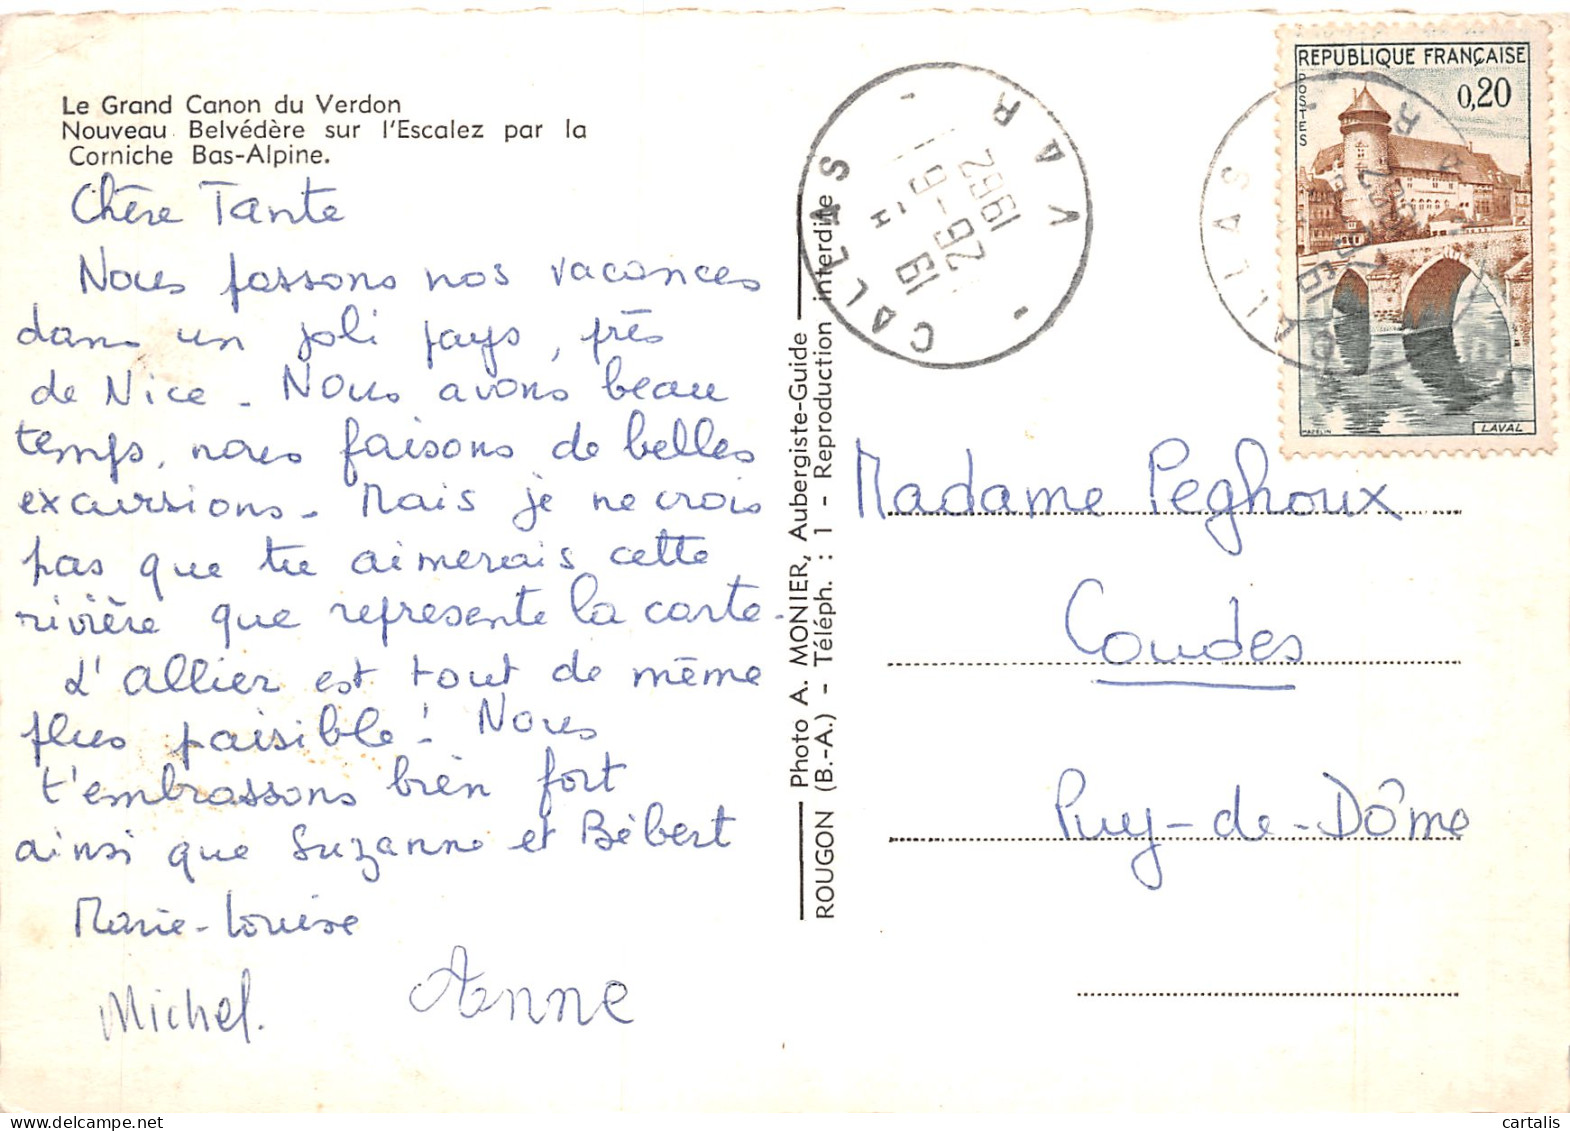 Le Grand Canon du Verdon
Nouveau Belvédère sur l'Escalez par la
Corniche Bas-Alpine.
Chère Tante
Nous passons nos vacances
dans un joli pays, près
de Nice - Nous avons beau
temps, nous faisons de belles
excursions - Mais je ne crois
pas que tu aimerais cette
rivière que represente la carte -
L'allier est tout de même
plus paisible ! Nous
t'embrassons bien fort
ainsi que Suzanne et Bébert
Marie-Louise
Michel. Anne
Photo A. MONIER, Aubergiste-Guide
ROUGON (B.-A.) - Téléph. : 1 - Reproduction interdite
CALLAS - VAR -
19 H
26-9
1962
REPUBLIQUE FRANÇAISE
POSTES
0,20
MAZELIN
LAVAL
CALLAS
Madame Peghoux
Coudes
Puy-de-Dôme
cartalis